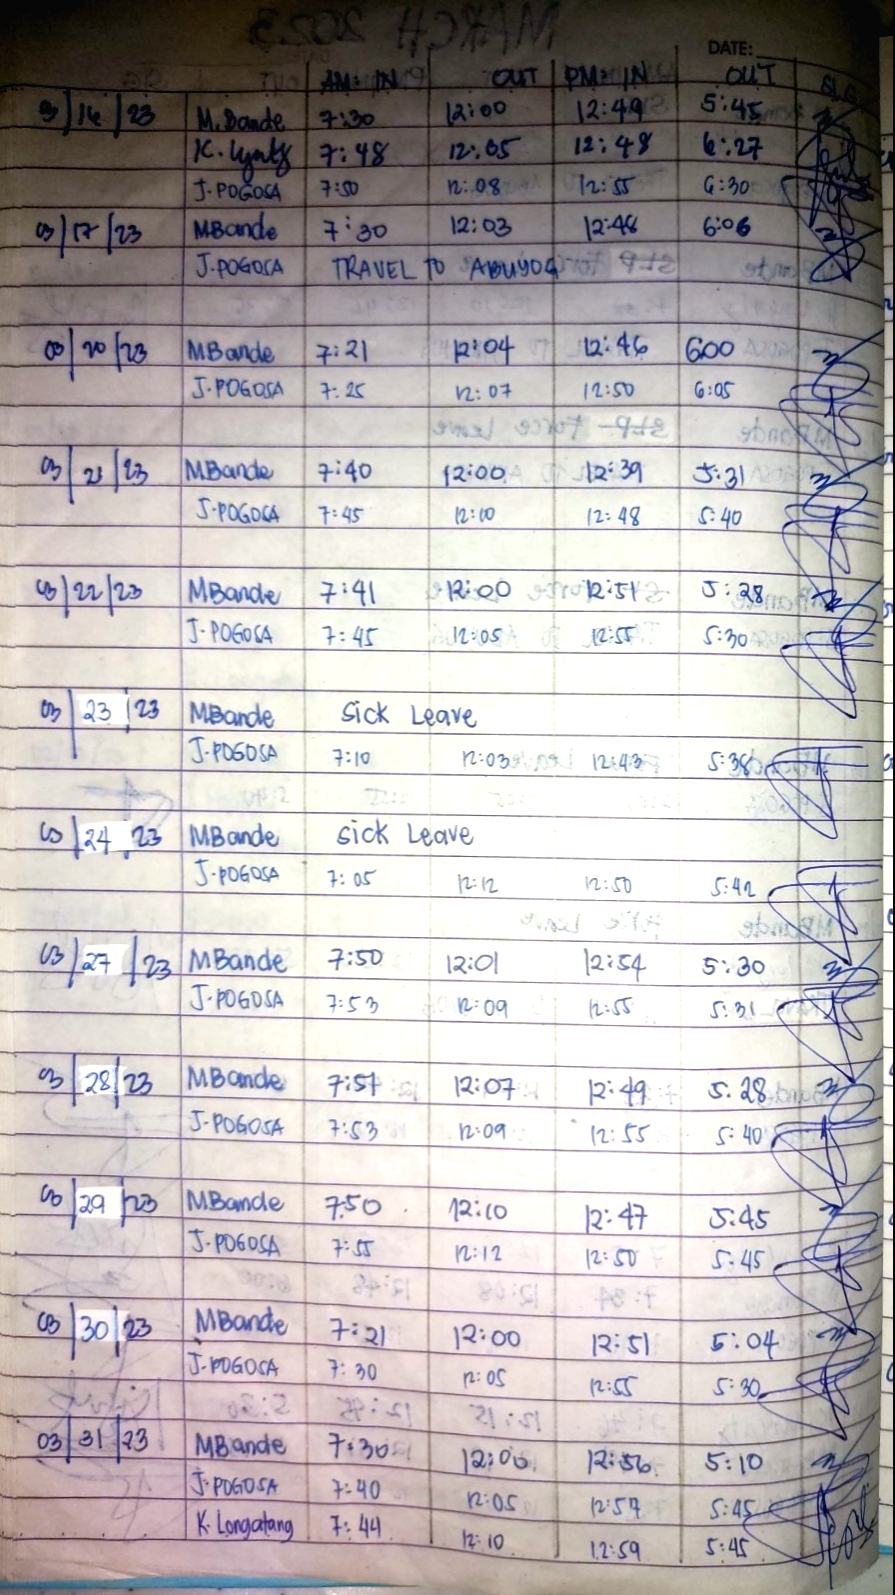 MARCH 2023
DATE:
AM: IN OUT PM: IN OUT SIG
3/16/23 M.Bande 7:30 12:00 12:49 5:45
K. 7:48 12:05 12:48 6:27
J.POGOSA 7:50 12:08 12:55 6:30
03/17/23 MBande 7:30 12:03 12:46 6:06
J.POGOSA TRAVEL TO ABUYOG
03/20/23 MBande 7:21 12:04 12:46 600
J.POGOSA 7:25 12:07 12:50 6:05
03/21/23 MBande 7:40 12:00 12:39 5:31
J.POGOSA 7:45 12:10 12:48 5:40
03/22/23 MBande 7:41 12:00 12:51 5:28
J.POGOSA 7:45 12:05 12:55 5:30
03/23/23 MBande Sick Leave
J.POGOSA 7:10 12:03 12:43 5:38
03/24/23 MBande Sick Leave
J.POGOSA 7:05 12:12 12:50 5:42
03/27/23 MBande 7:50 12:01 12:54 5:30
J.POGOSA 7:53 12:09 12:55 5:31
03/28/23 MBande 7:51 12:07 12:49 5:28
J.POGOSA 7:53 12:09 12:55 5:40
03/29/23 MBande 750 12:10 12:47 5:45
J.POGOSA 7:55 12:12 12:50 5:45
03/30/23 MBande 7:21 12:00 12:51 5:04
J.POGOSA 7:30 12:05 12:55 5:30
03/31/23 MBande 7:30 12:00 12:56 5:10
J.POGOSA 7:40 12:05 12:57 5:45
K. Longatang 7:44 12:10 12:59 5:45